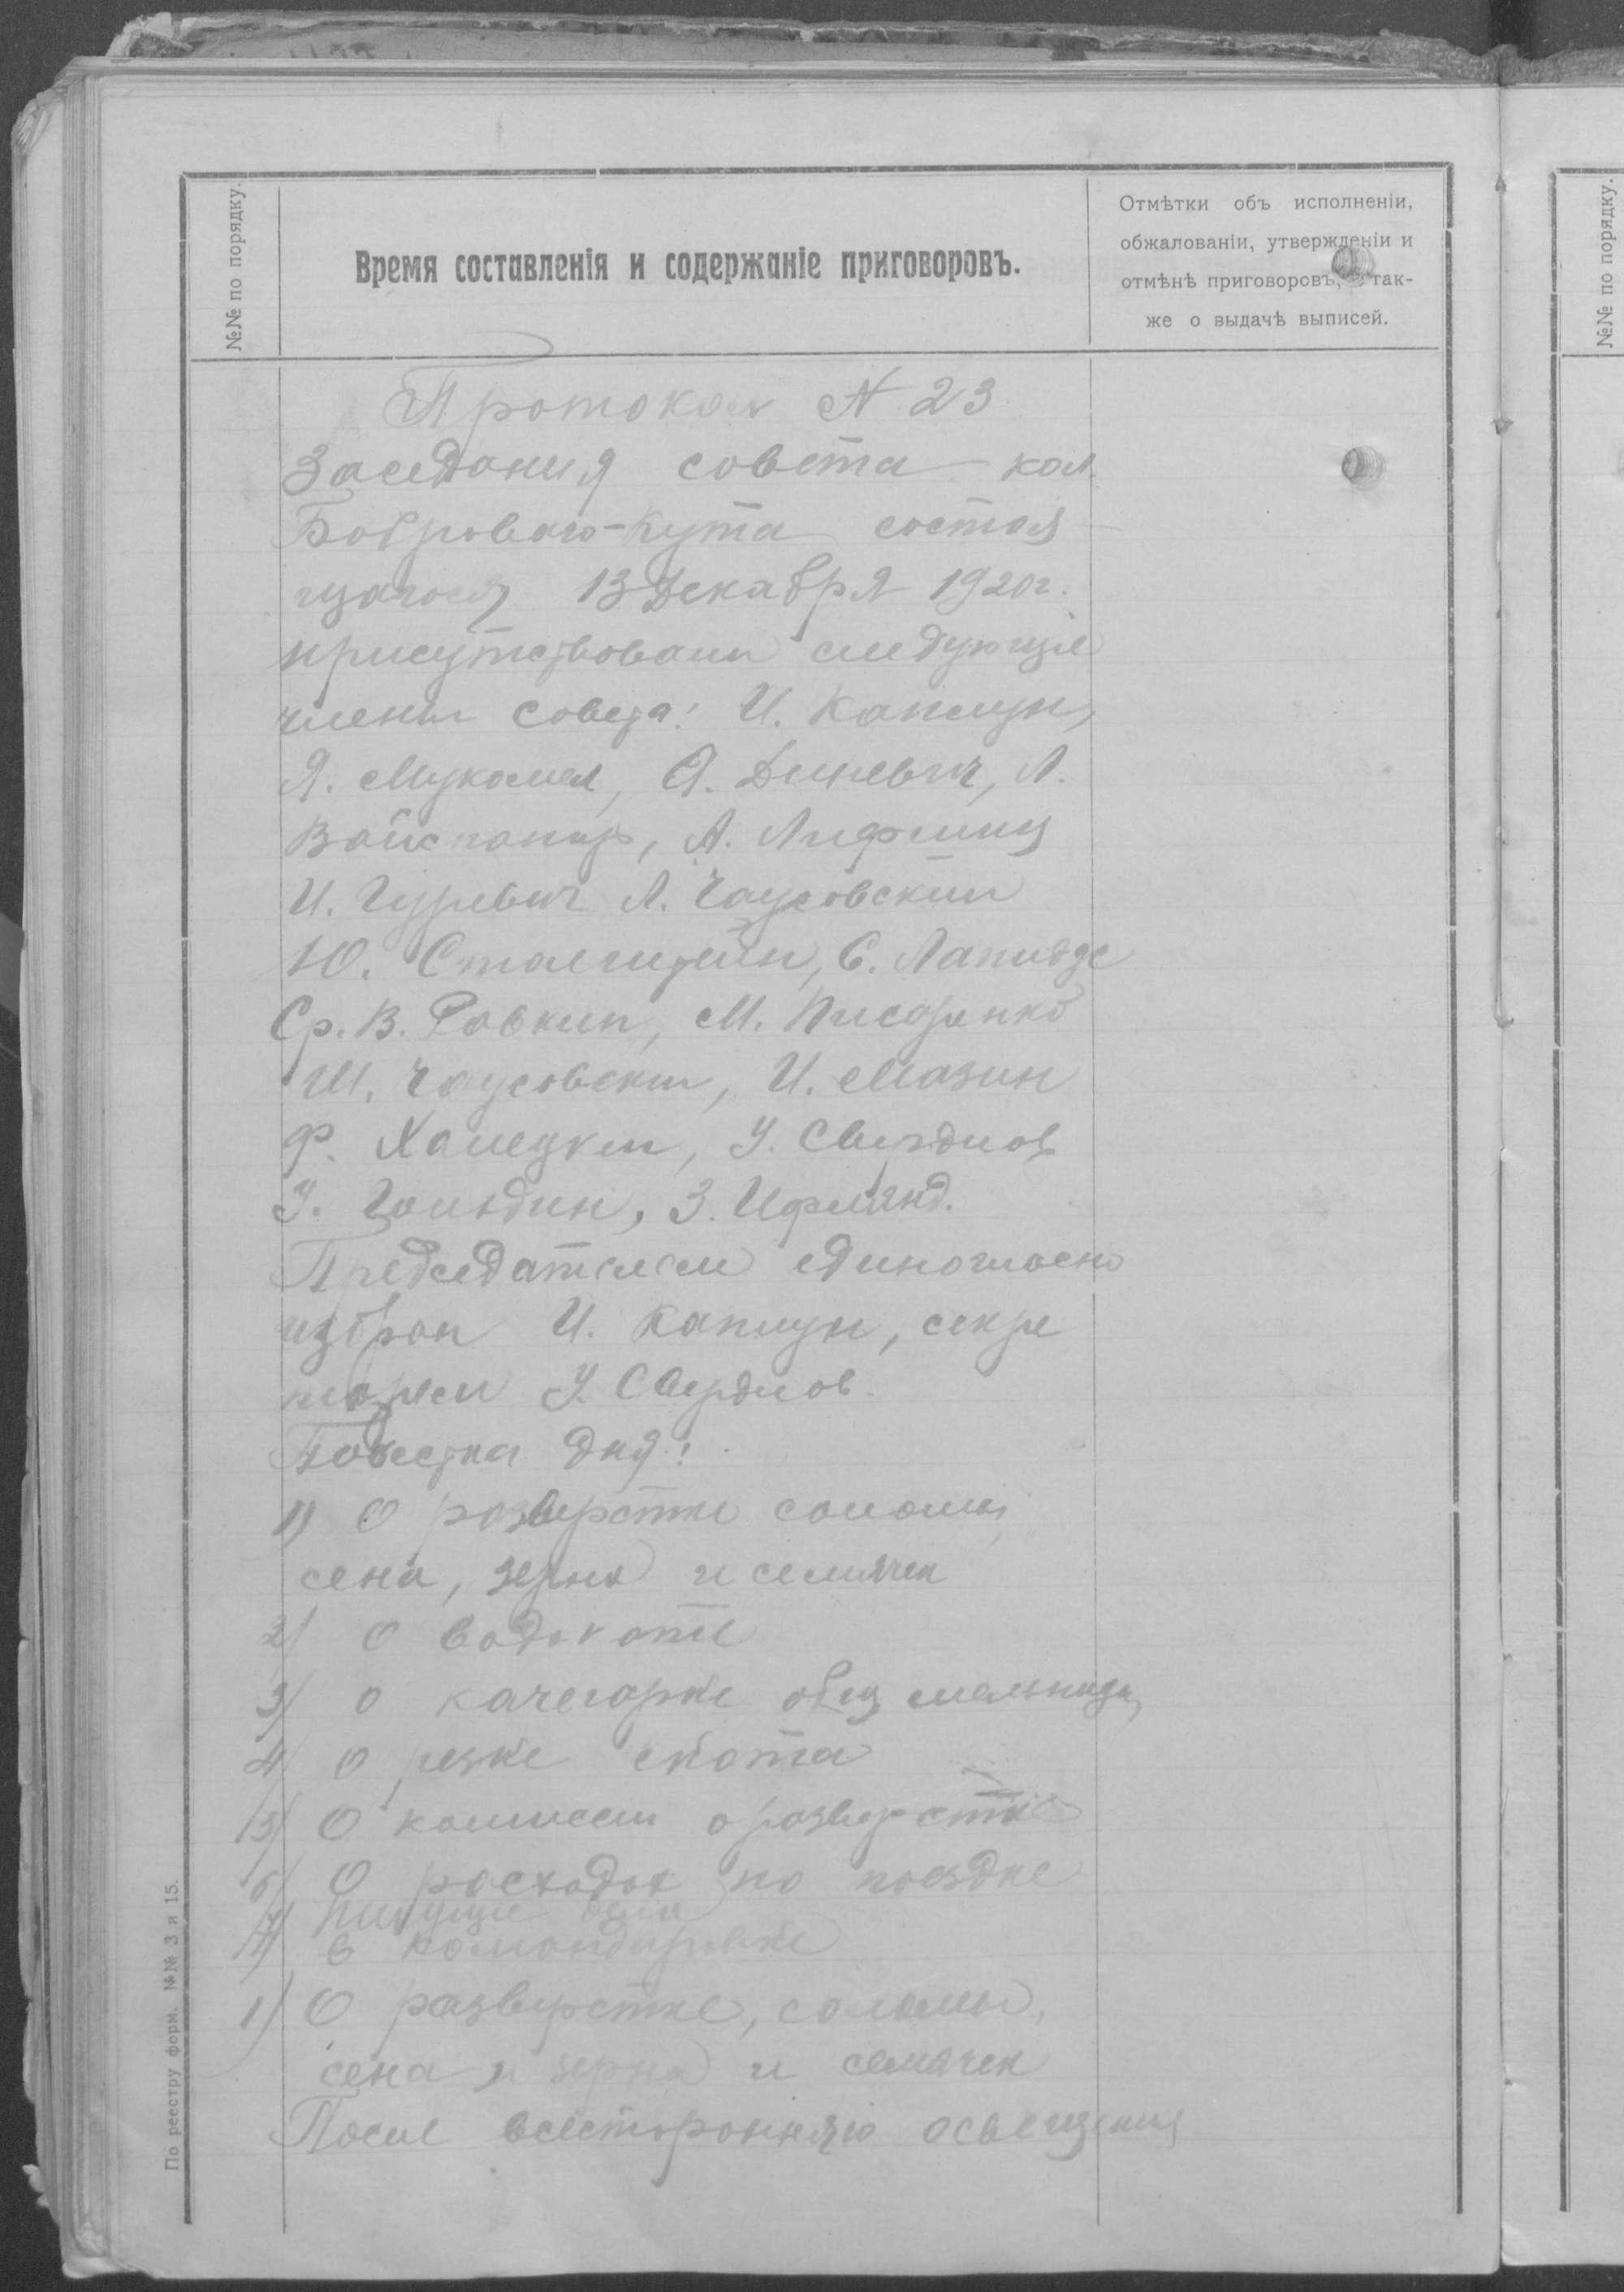 №№ по порядку.
Время составленія и содержаніе приговоровъ.
Отмѣтки объ исполненіи,
обжалованіи, утвержденіи и
отмѣнѣ приговоровъ, а так-
же о выдачѣ выписей.
№№ по порядку.
Протокол N 23
Заседания совета кол.
Боброваго-Кута состояв
щагося 13 Декабря 1920г.
присутствовали следующие
члены Совета: И. Каплун,
Я. Мукомел, Я. Диневич, Л.
Вайспапир, А. Лифшиц
И. Гуревич Л. Чаусовский
Ю. Стальштейн, С. Лапидус
Ср. В. Рабкин, М. Писаренко
Ш. Чаусовский, И. Мазин
Ф. Халецкий, У. Свердлов
У. Гольдин, З. Ифлянд.
Председателем единогласно
избран И. Каплун, секре
тарем У. Свердлов.
Повестка дня:
1) О разверстке соломы,
сена, зерна и семячек
2) О водокате
3) О качегарке общ мельницы
4) О резке скота
5) О комиссии о разверстке
6) О расходах по поездке
7) Текущие дела
в командировке
1) О разверстке, соломы,
сена и зерна и семячек
После всесторонняго освещения
По реестру форм. №№ 3 и 15.